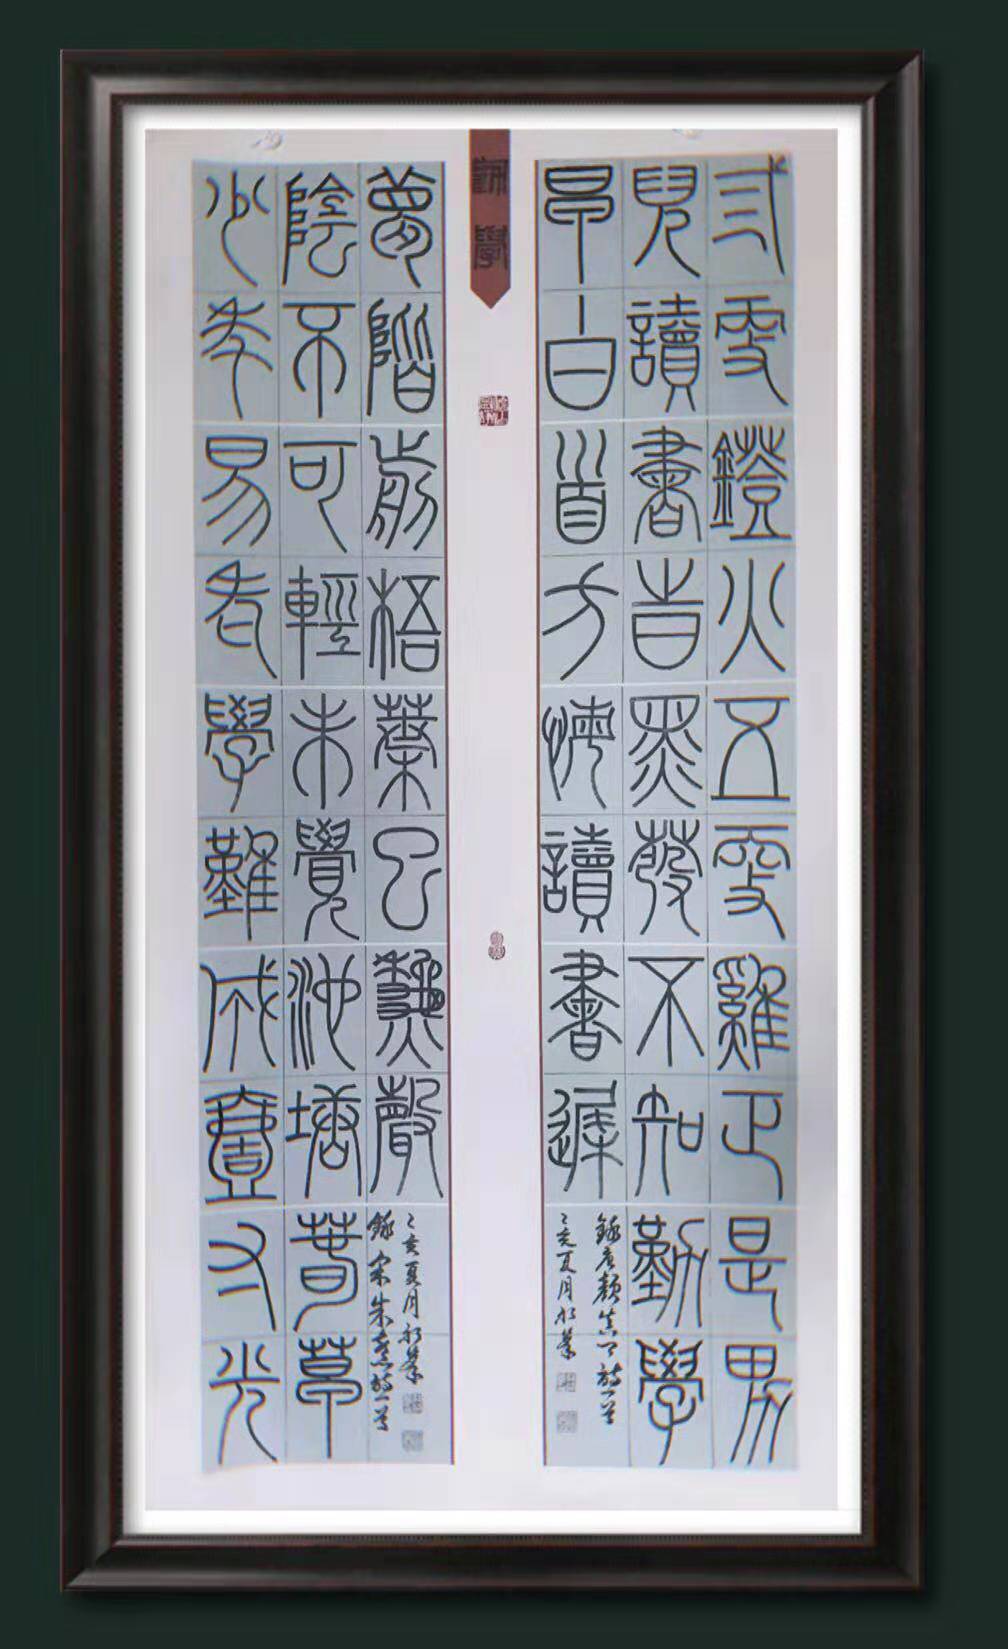 勸學
弎更鐙火五更雞正是男
兒讀書旹黑髮不知勤學
早白首方悔讀書遲
錄唐顏真卿詩一首
己亥夏月
少年易老學難成壹寸光
陰不可輕未覺池塘春草
夢階前梧葉已秋聲
錄宋朱熹詩一首
己亥夏月